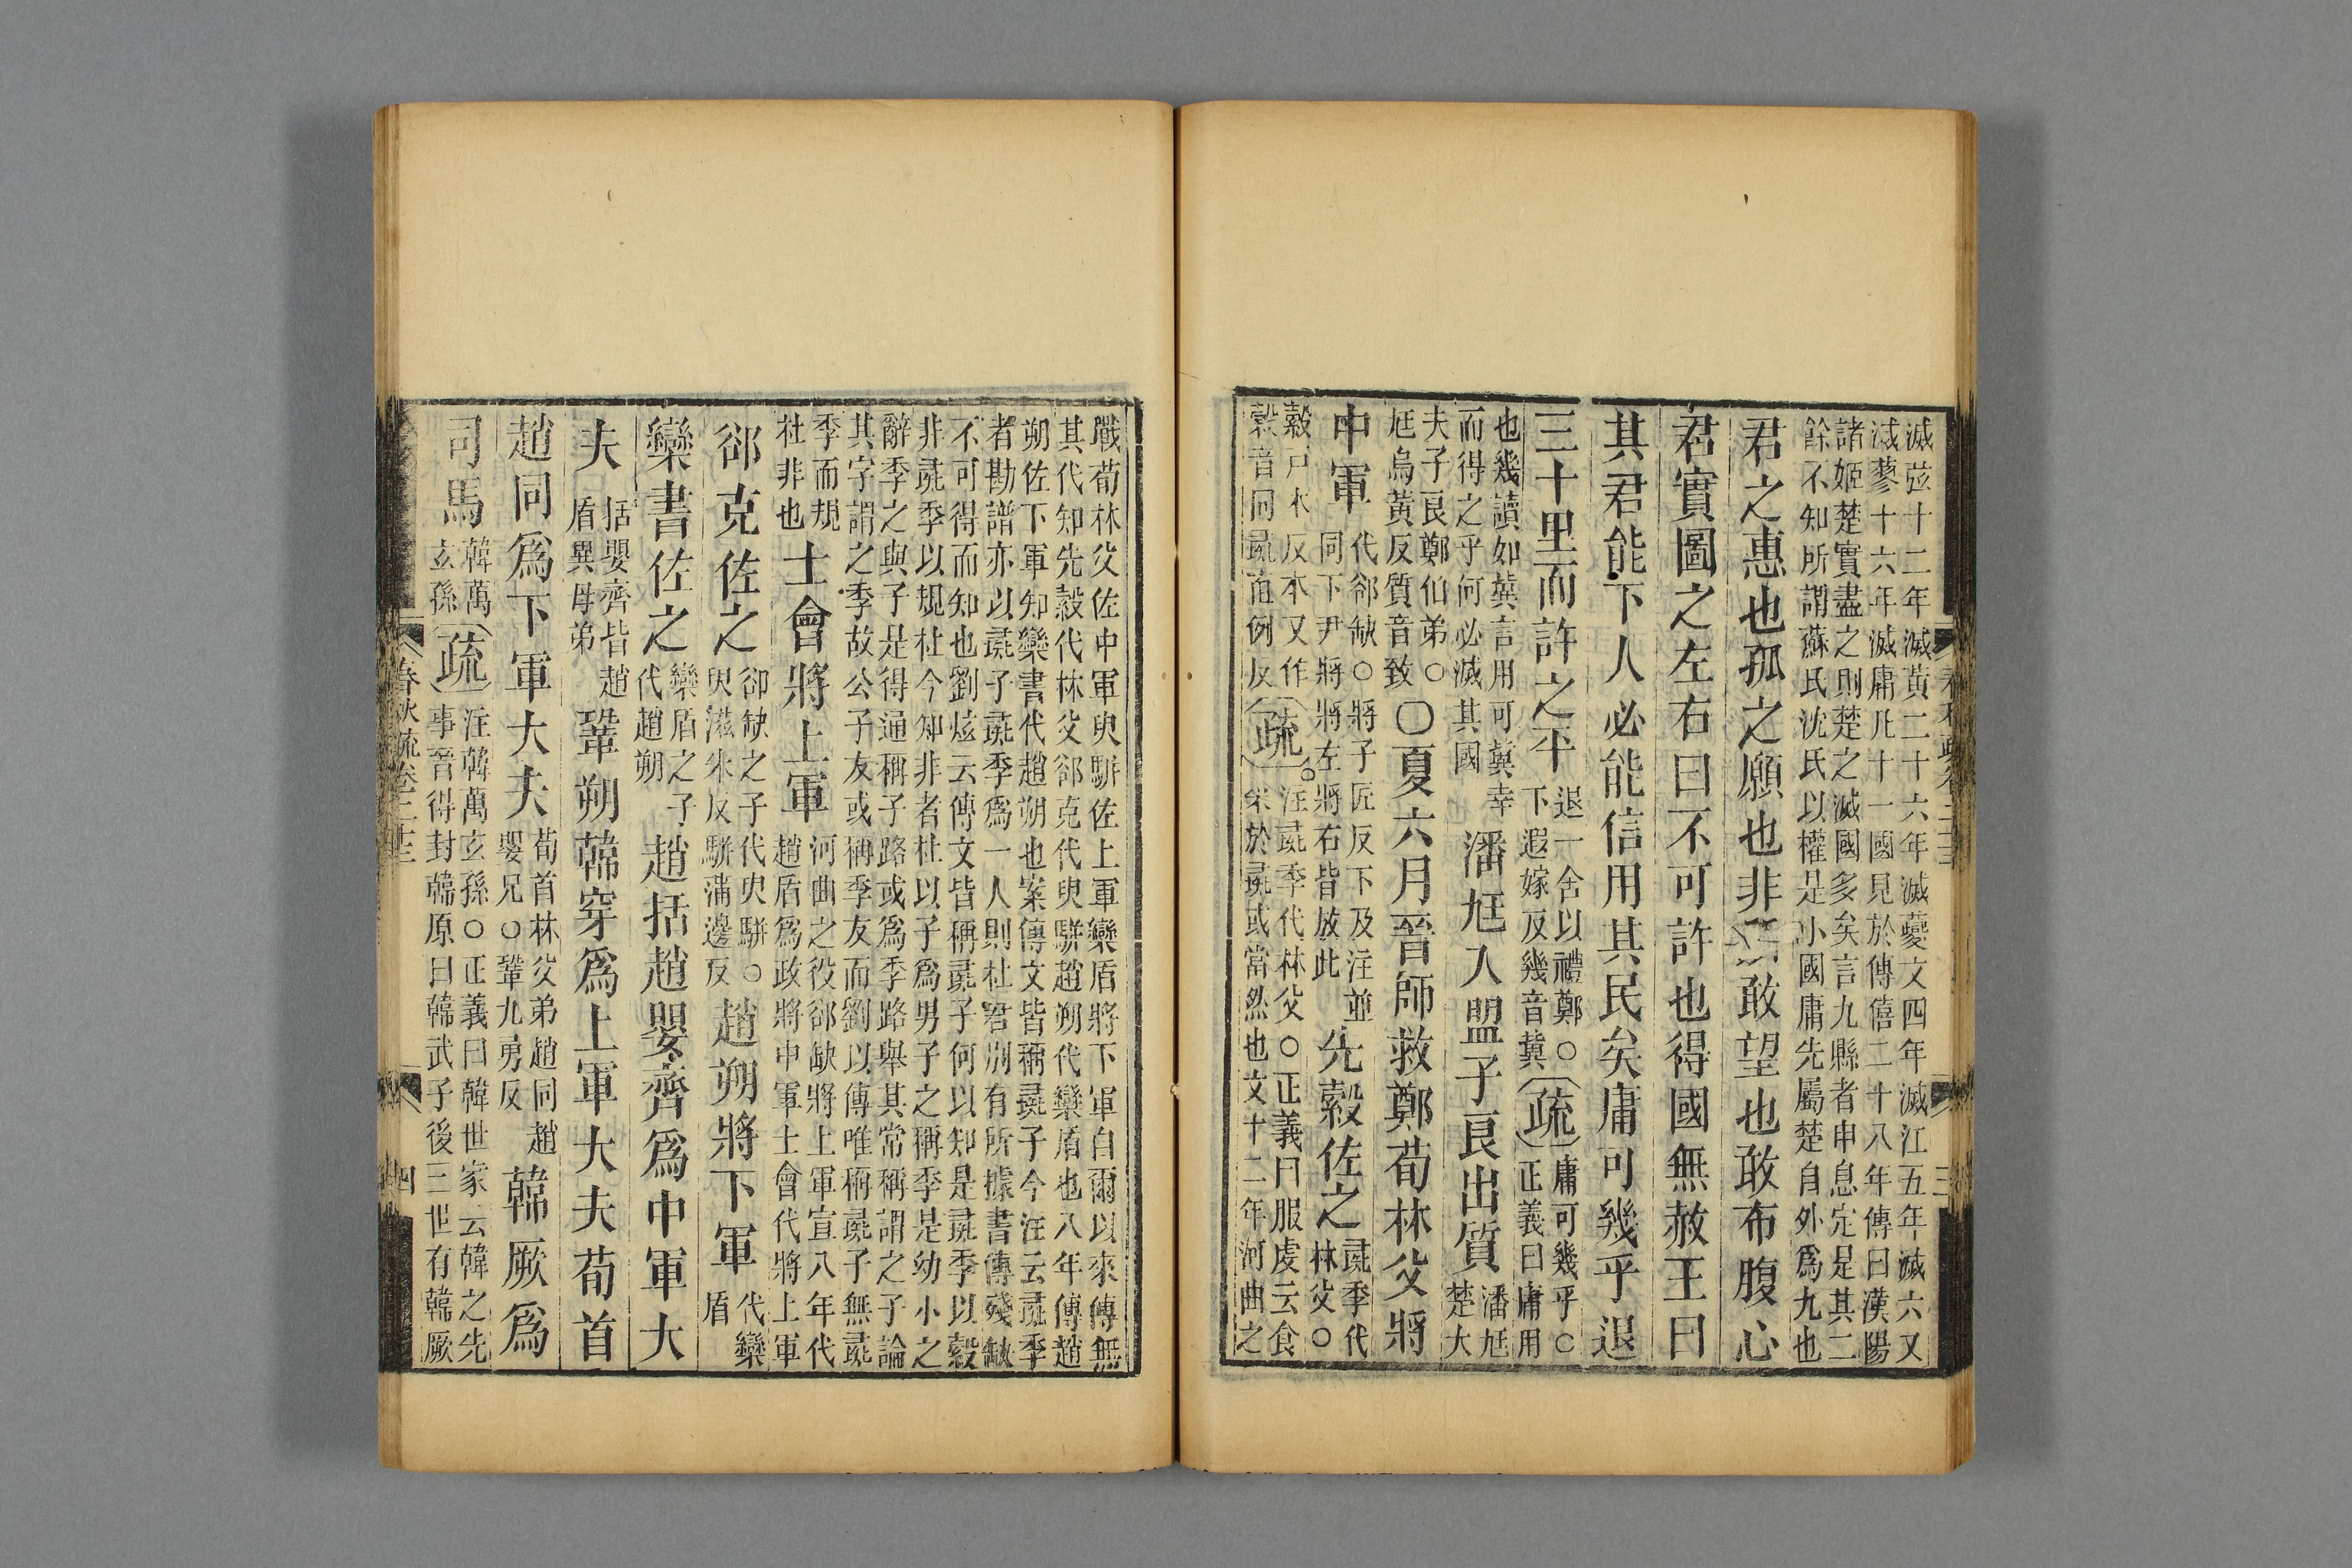 滅弦十二年滅黃二十六年滅夔文四年滅江五年滅六又
滅蓼十六年滅庸凡十一國見於傳僖二十八年傳曰漢陽
諸姬楚實盡之則楚之滅國多矣言九縣者申息定是其二
餘不知所謂蘇氏沈氏以權是小國庸先屬楚自外爲九也
君之惠也孤之願也非所敢望也敢布腹心
君實圖之左右曰不可許也得國無赦王曰
其君能下人必能信用其民矣庸可幾乎退
三十里而許之平
退一舍以禮鄭○
下遐嫁反幾音冀
疏
庸可幾乎○
正義曰庸用
也幾讀如冀言用可冀幸
而得之乎何必滅其國
潘尫入盟子良出質
潘尫
楚大
夫子良鄭伯弟○
尫烏黃反質音致
○夏六月晉師救鄭荀林父將
中軍
代郤缺○將子匠反下及注並
同下尹將將左將右皆放此
先縠佐之
彘季代
林父○
縠戸木反本又作
㝅音同彘直例反
疏
注彘季代林父○正義曰服虔云食
采於彘或當然也文十二年河曲之
戰荀林父佐中軍臾駢佐上軍欒盾將下軍自爾以來傳無
其代知先縠代林父郤克代臾駢趙朔代欒盾也八年傳趙
朔佐下軍知欒書代趙朔也案傳文皆稱彘子今注云彘季
者勘譜亦以彘子彘季爲一人則杜君別有所據書傳殘缺
不可得而知也劉炫云傳文皆稱彘子何以知是彘季以縠
非彘季以規杜今知非者杜以子爲男子之稱季是幼小之
辭季之與子是得通稱子路或爲季路舉其常稱謂之子論
其字謂之季故公子友或稱季友而劉以傳唯稱彘子無彘
季而規
杜非也
士會將上軍
河曲之役郤缺將上軍宣八年代
趙盾爲政將中軍士會代將上軍
郤克佐之
郤缺之子代臾駢○
臾滋朱反駢蒲邊反
趙朔將下軍
代欒
盾
欒書佐之
欒盾之子
代趙朔
趙括趙嬰齊爲中軍大
夫
括嬰齊皆趙
盾異母弟
鞏朔韓穿爲上軍大夫荀首
趙同爲下軍大夫
荀首林父弟趙同趙
嬰兄○鞏九勇反
韓厥爲
司馬
韓萬
玄孫
疏
注韓萬玄孫○正義曰韓世家云韓之先
事晉得封韓原曰韓武子後三世有韓厥
春秋疏卷二十三
四